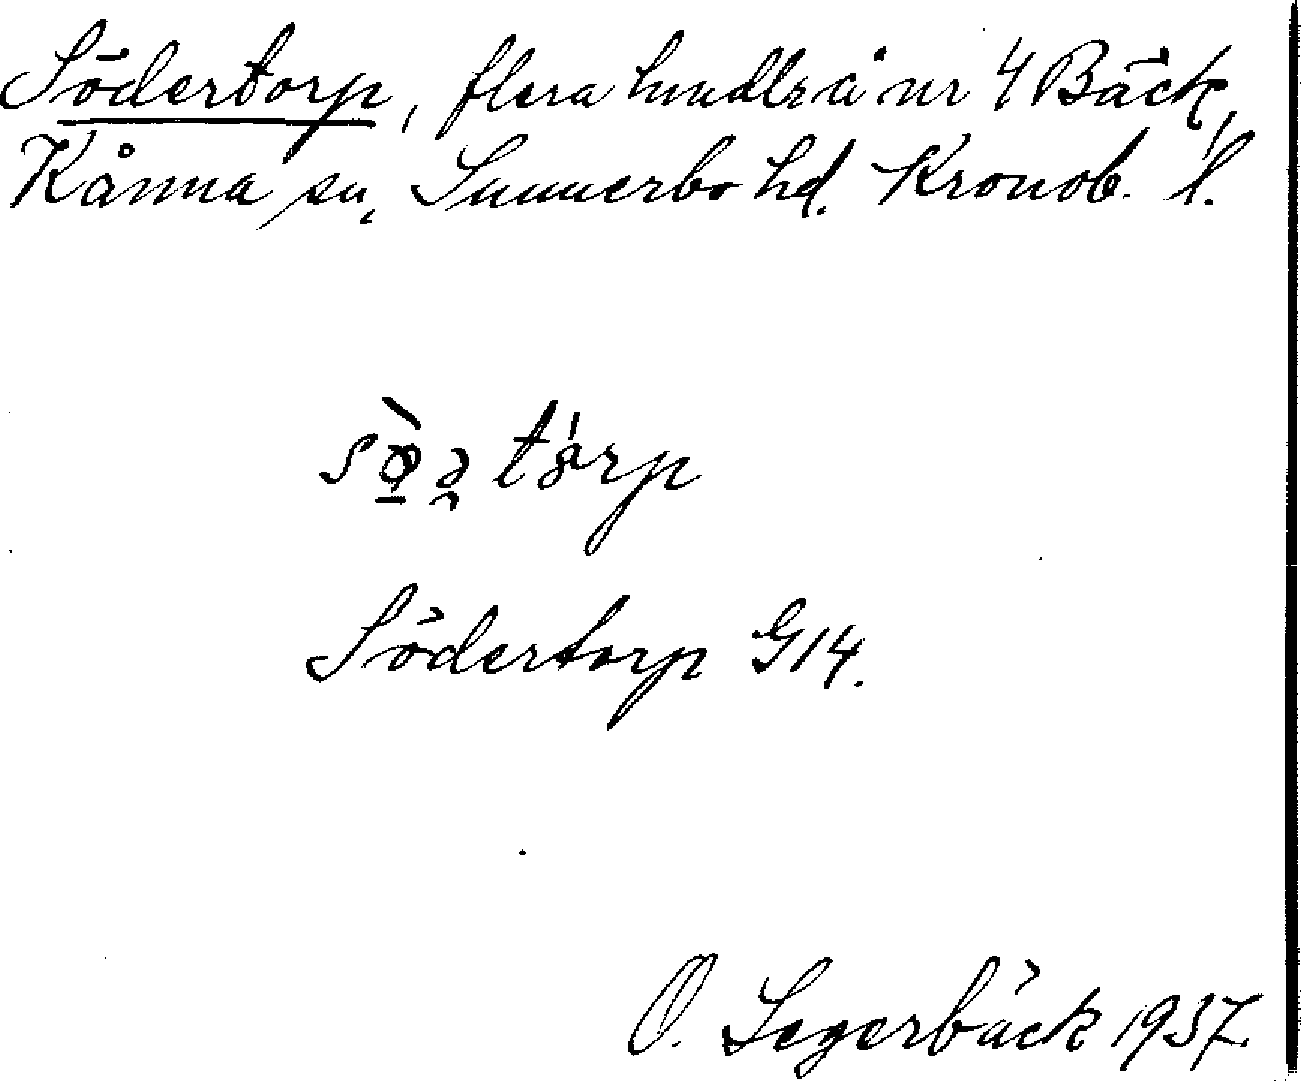 Södertorp, flera hmdlr å nr 4 Bäck,
Kånna sn, Sunnerbo hd. Kronob. l.
sø̱̀ə̯tárp
Södertorp G14.
O. Segerbäck 1937.